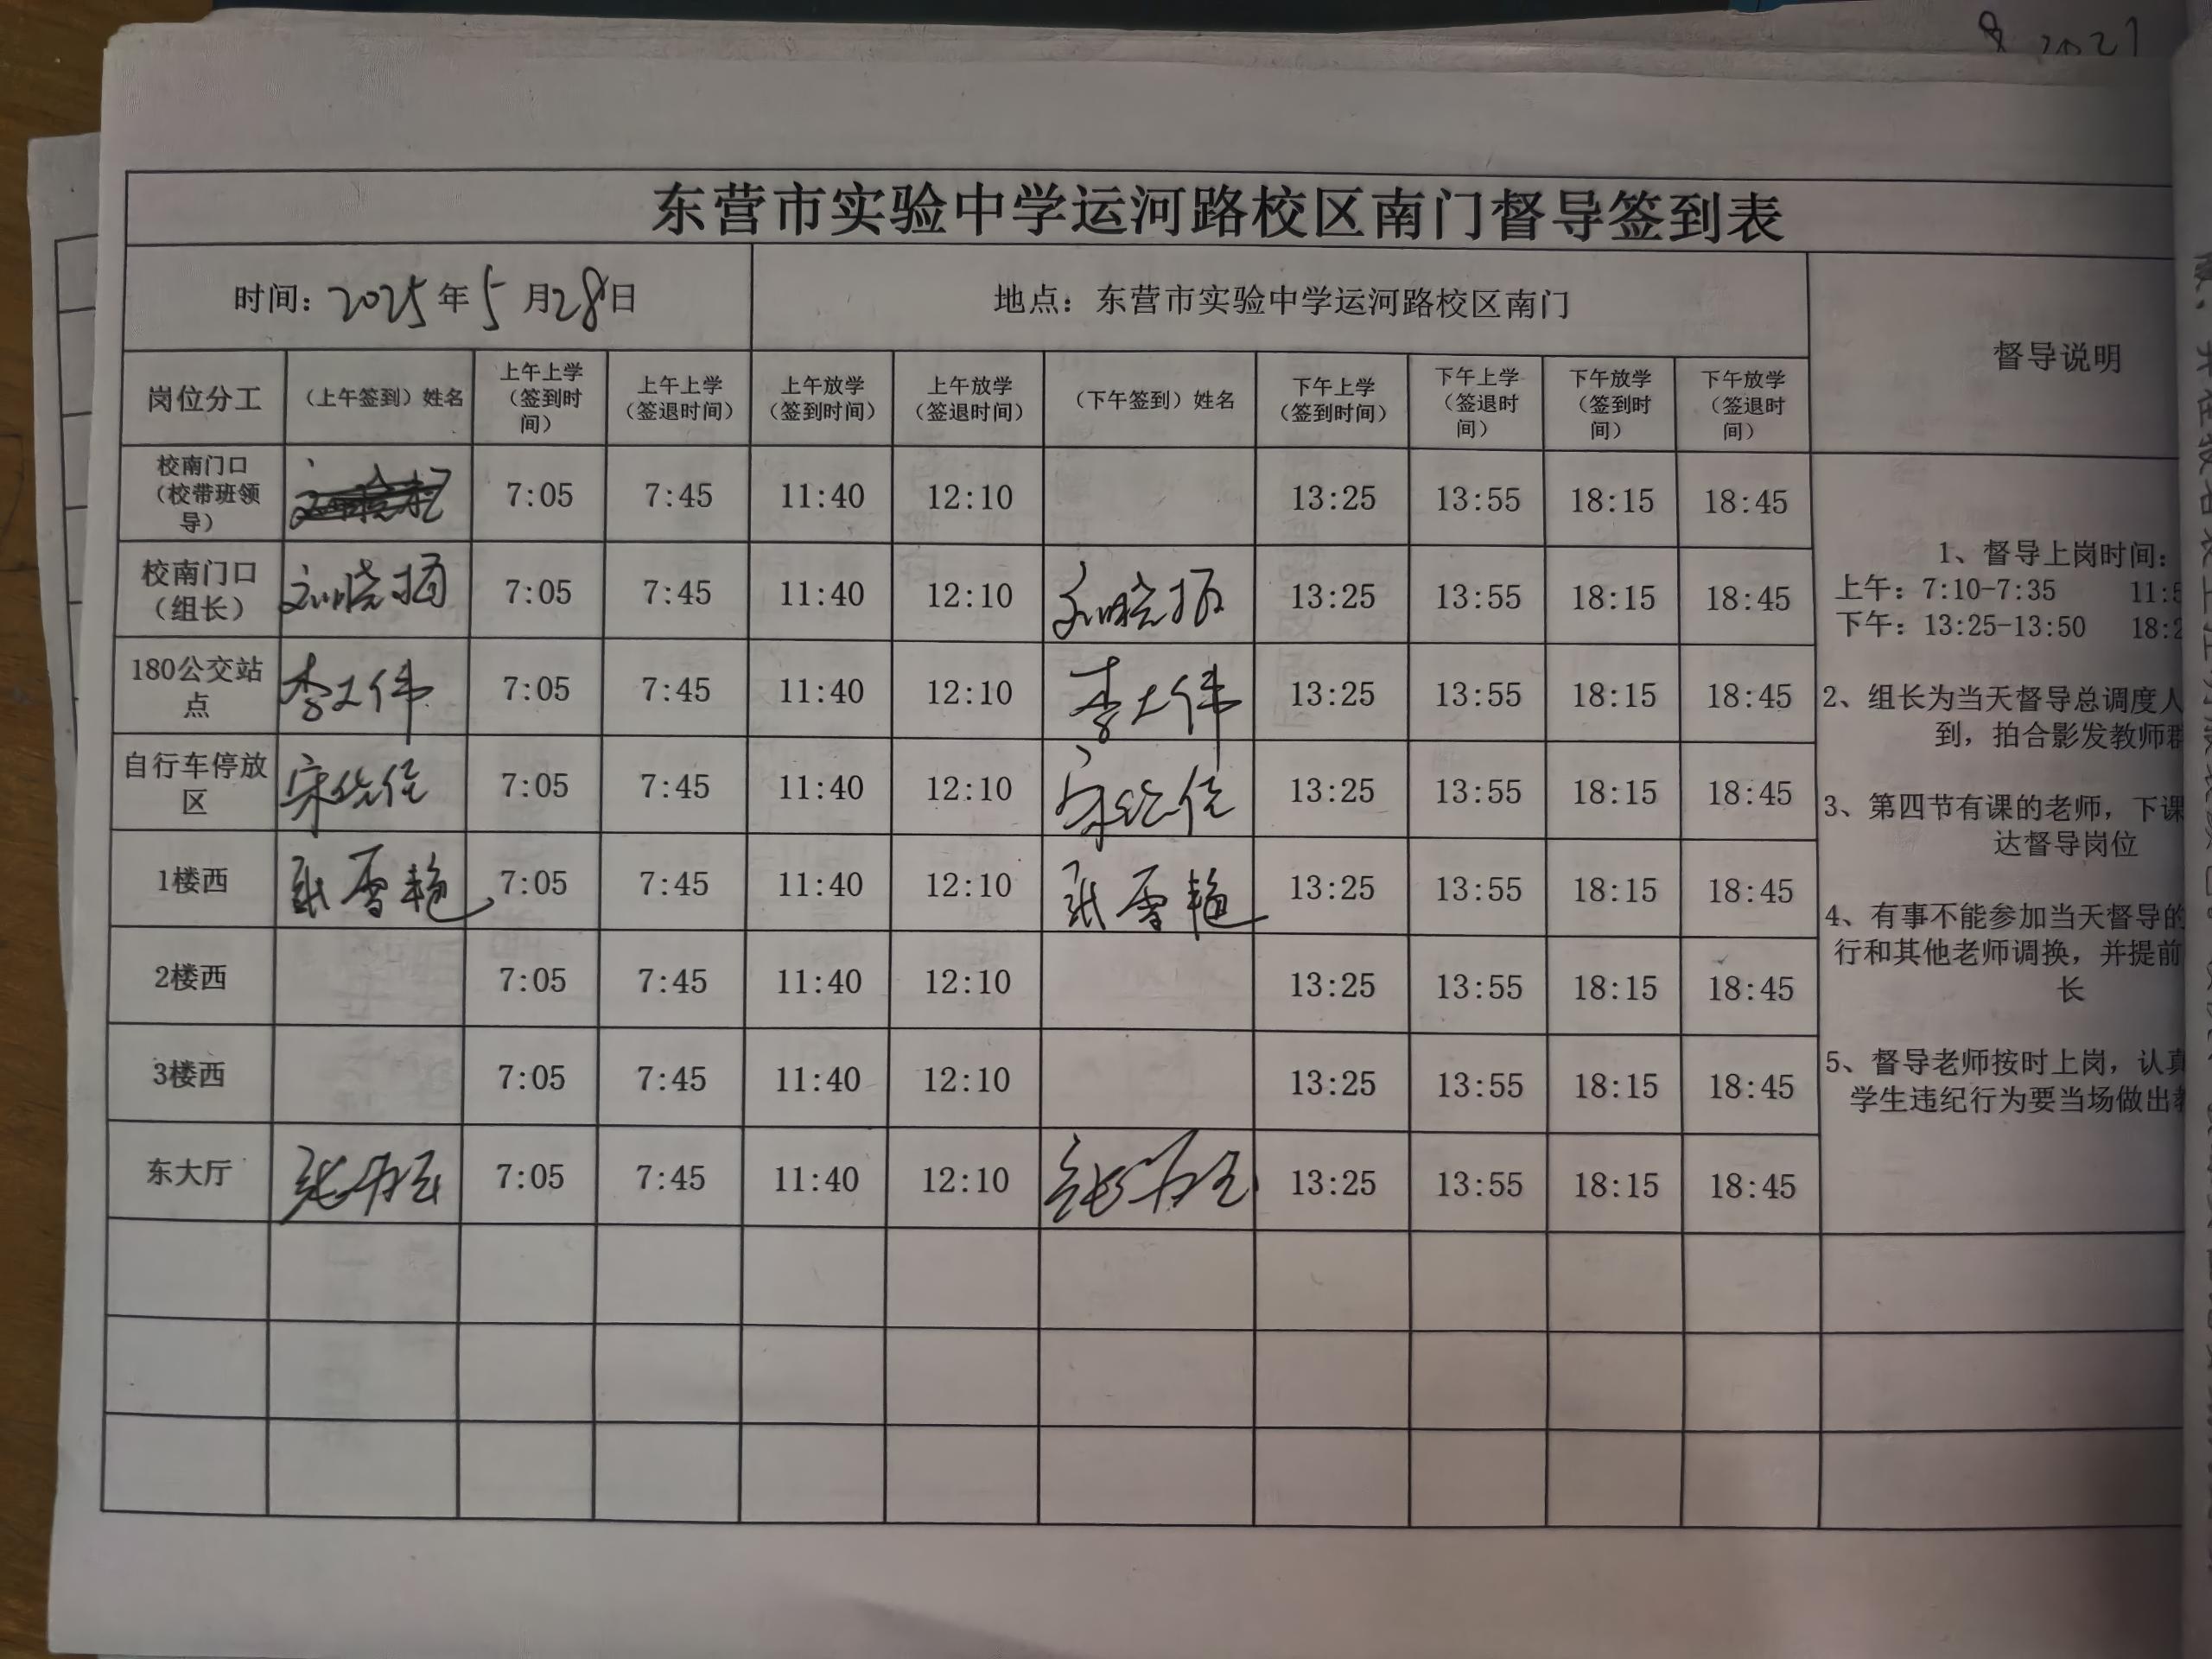 东营市实验中学运河路校区南门督导签到表
时间：2025年5月28日
地点：东营市实验中学运河路校区南门
督导说明
岗位分工
（上午签到）姓名
上午上学
（签到时
间）
上午上学
（签退时间）
上午放学
（签到时间）
上午放学
（签退时间）
（下午签到）姓名
下午上学
（签到时间）
下午上学
（签退时
间）
下午放学
（签到时
间）
下午放学
（签退时
间）
校南门口
（校带班领
导）
7:05 7:45 11:40 12:10 13:25 13:55 18:15 18:45
校南门口
（组长）
刘晓 7:05 7:45 11:40 12:10 刘晓 13:25 13:55 18:15 18:45
180公交站
点
李 伟 7:05 7:45 11:40 12:10 李 伟 13:25 13:55 18:15 18:45
自行车停放
区
宋 7:05 7:45 11:40 12:10 宋 13:25 13:55 18:15 18:45
1楼西 张雪艳 7:05 7:45 11:40 12:10 张雪艳 13:25 13:55 18:15 18:45
2楼西 7:05 7:45 11:40 12:10 13:25 13:55 18:15 18:45
3楼西 7:05 7:45 11:40 12:10 13:25 13:55 18:15 18:45
东大厅 张 7:05 7:45 11:40 12:10 张 13:25 13:55 18:15 18:45
1、督导上岗时间：
上午：7:10-7:35 11:5
下午：13:25-13:50 18:2
2、组长为当天督导总调度人
到，拍合影发教师群
3、第四节有课的老师，下课
达督导岗位
4、有事不能参加当天督导的
行和其他老师调换，并提前
长
5、督导老师按时上岗，认真
学生违纪行为要当场做出教